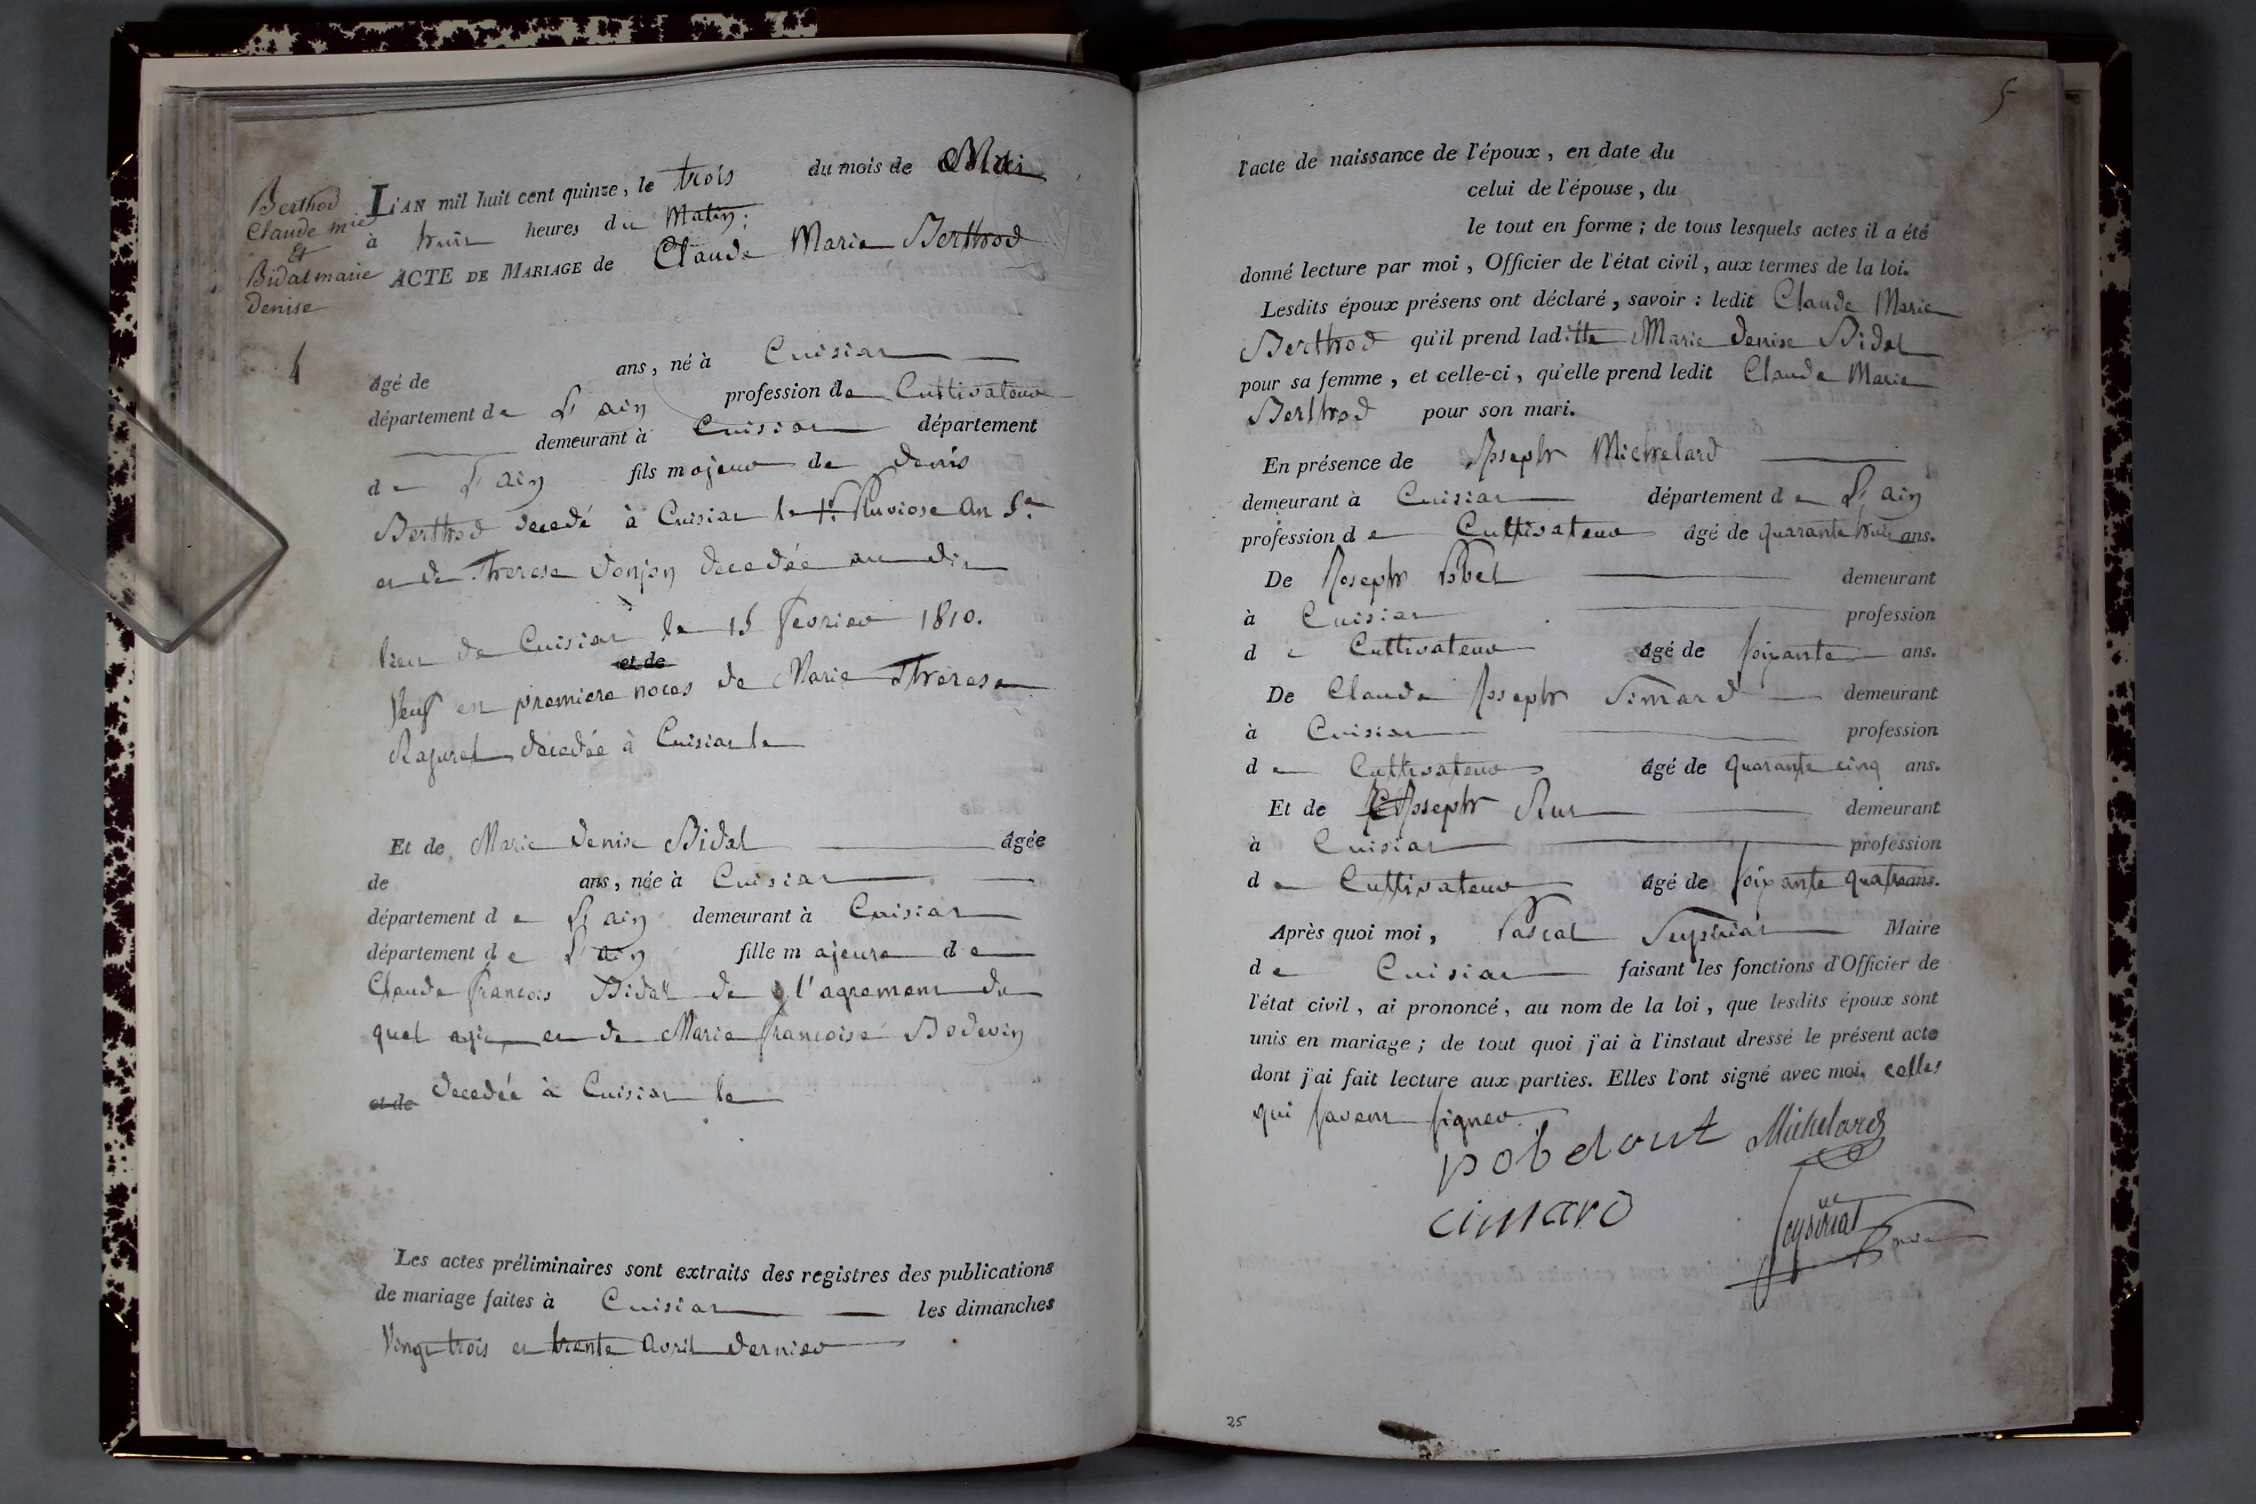 Berthod
Claude mie
Et
Bidal marie
Denise
4
L'AN mil huit cent quinze, le trois du mois de Mai
à huit heures du Matin.
ACTE DE MARIAGE de Claude Marie Berthod
âgé de ans, né à Cuisiat
département de L'ain profession de Cultivateur
demeurant à Cuisiat département
de L'ain fils majeur de denis
Berthod decedé à Cuisiat le Pluviose an
et de Therese donjon decedée au dit
lieu de Cuisiat le 15 fevrier 1810.
et de
Veuf en premiere noces de Marie Therese
decedée à Cuisiat le
Et de Marie denise Bidal âgée
de ans, née à Cuisiat
département de L'ain demeurant à Cuisiat
département de L'ain fille majeure de
Claude francois Bidal de l'agrement du
quel agit et de Marie francoise Bodevin
et de decedée à Cuisiat le
Les actes préliminaires sont extraits des registres des publications
de mariage faites à Cuisiat les dimanches
Vingt trois et trente avril dernier
5
l'acte de naissance de l'époux, en date du
celui de l'épouse, du
le tout en forme ; de tous lesquels actes il a été
donné lecture par moi, Officier de l'état civil, aux termes de la loi.
Lesdits époux présens ont déclaré, savoir : ledit Claude Marie
Berthod qu'il prend laditte Marie denise Bidal
pour sa femme, et celle-ci, qu'elle prend ledit Claude Marie
Berthod pour son mari.
En présence de Joseph Michelard
demeurant à Cuisiat département de L'ain
profession de Cultivateur âgé de quarante huit ans.
De Joseph Pobel demeurant
à Cuisiat profession
de Cultivateur âgé de soixante ans.
De Claude Joseph Simard demeurant
à Cuisiat profession
de Cultivateur âgé de quarante cinq ans.
Et de Joseph demeurant
à Cuisiat profession
de Cultivateur âgé de soixante quatre ans.
Après quoi moi, Pascal Seysiriat Maire
de Cuisiat faisant les fonctions d'Officier de
l'état civil, ai prononcé, au nom de la loi, que lesdits époux sont
unis en mariage ; de tout quoi j'ai à l'instaut dressé le présent acte
dont j'ai fait lecture aux parties. Elles l'ont signé avec moi. celles
qui savent signer.
pobel Michelard
cimard
25